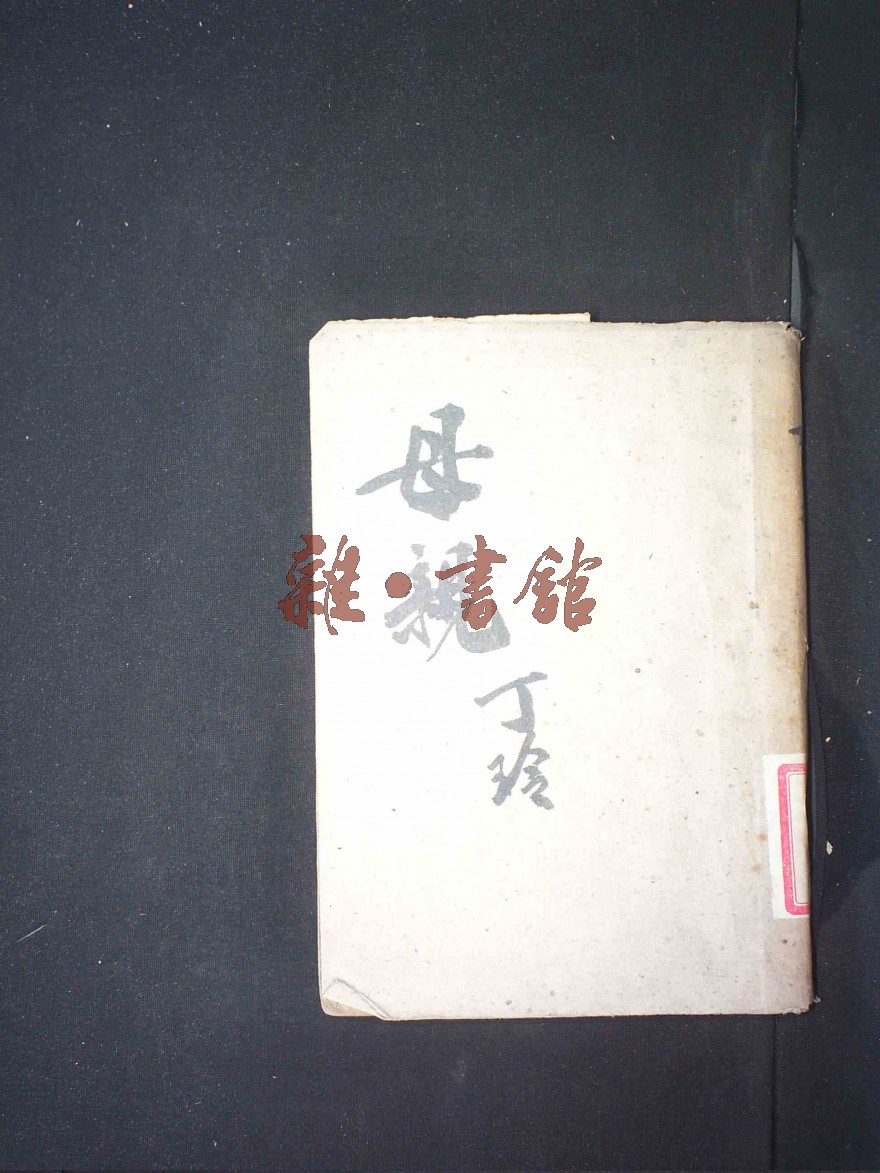 母親
丁玲
雜·書館